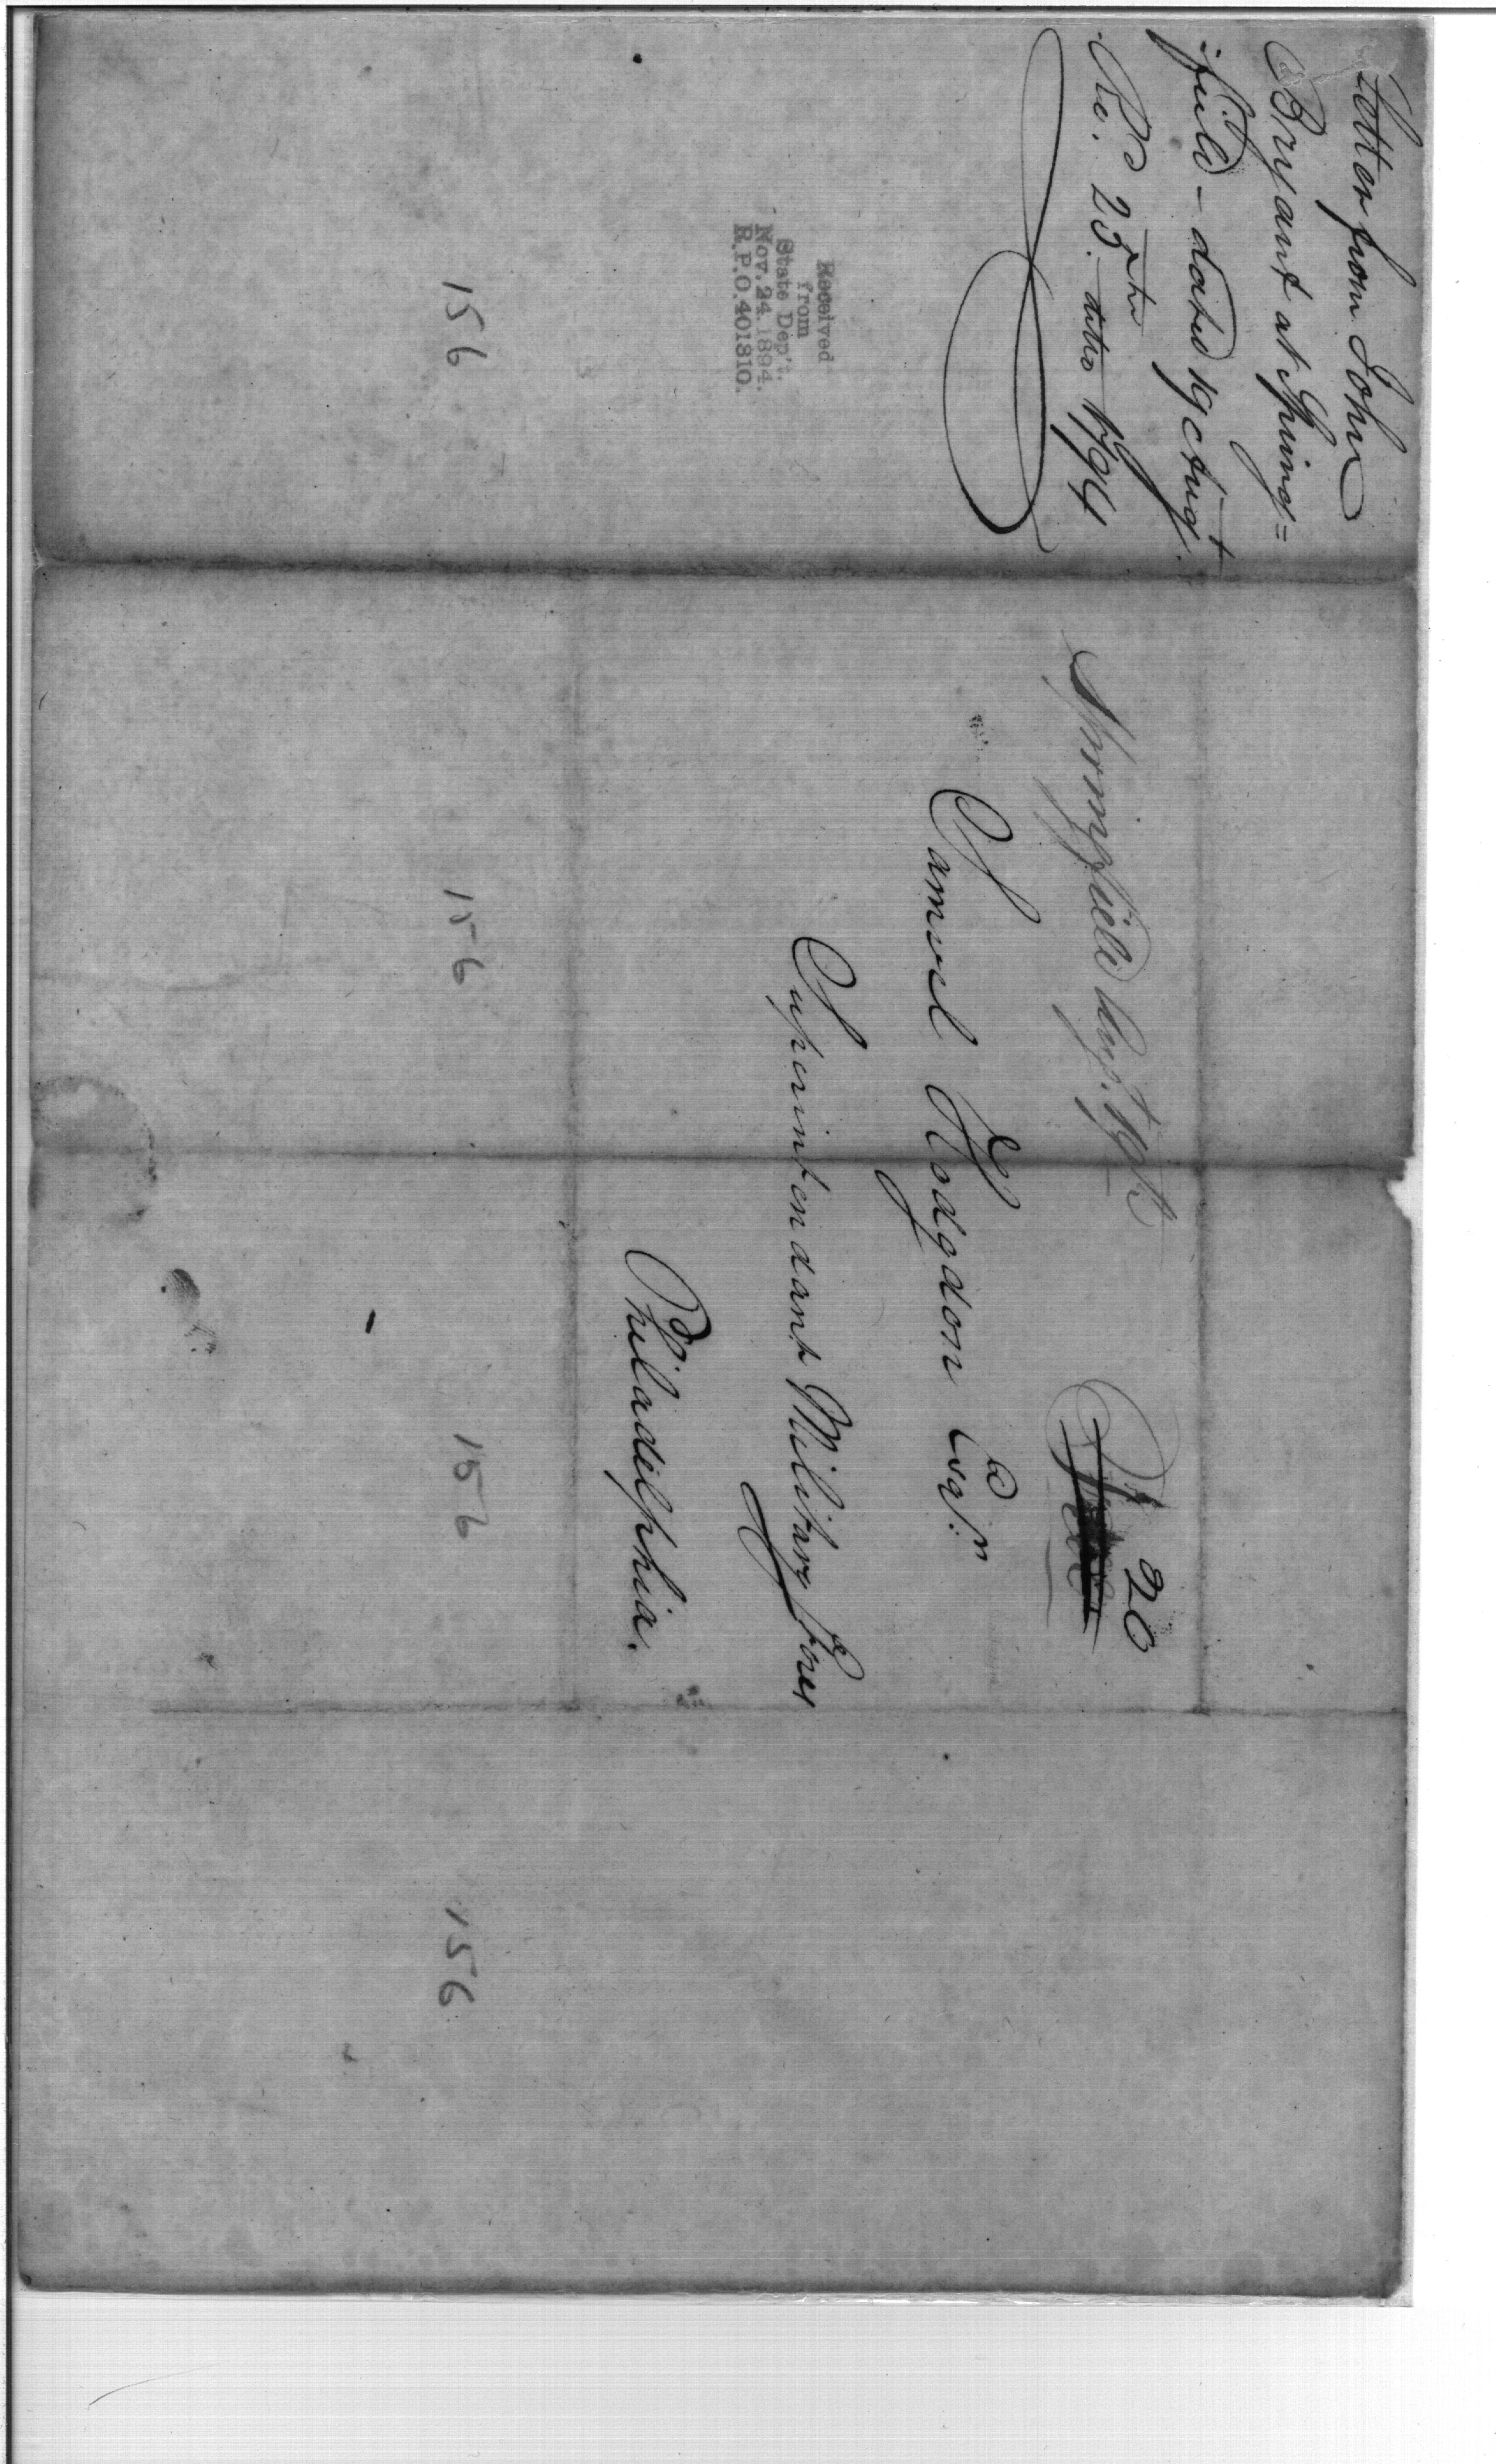 Letter from John
Bryant at Spring=
:field - dated 19 Augt.
Rec. 25th ditto 1794
Received
from
State Dep't.
Nov. 24. 1894.
R.P.O. 401310.
156
Springfield Augt. 19th
20
Free
Samuel Hodgdon Esqr.
Superintendant Military Stores
Philadelphia.
156
156
156